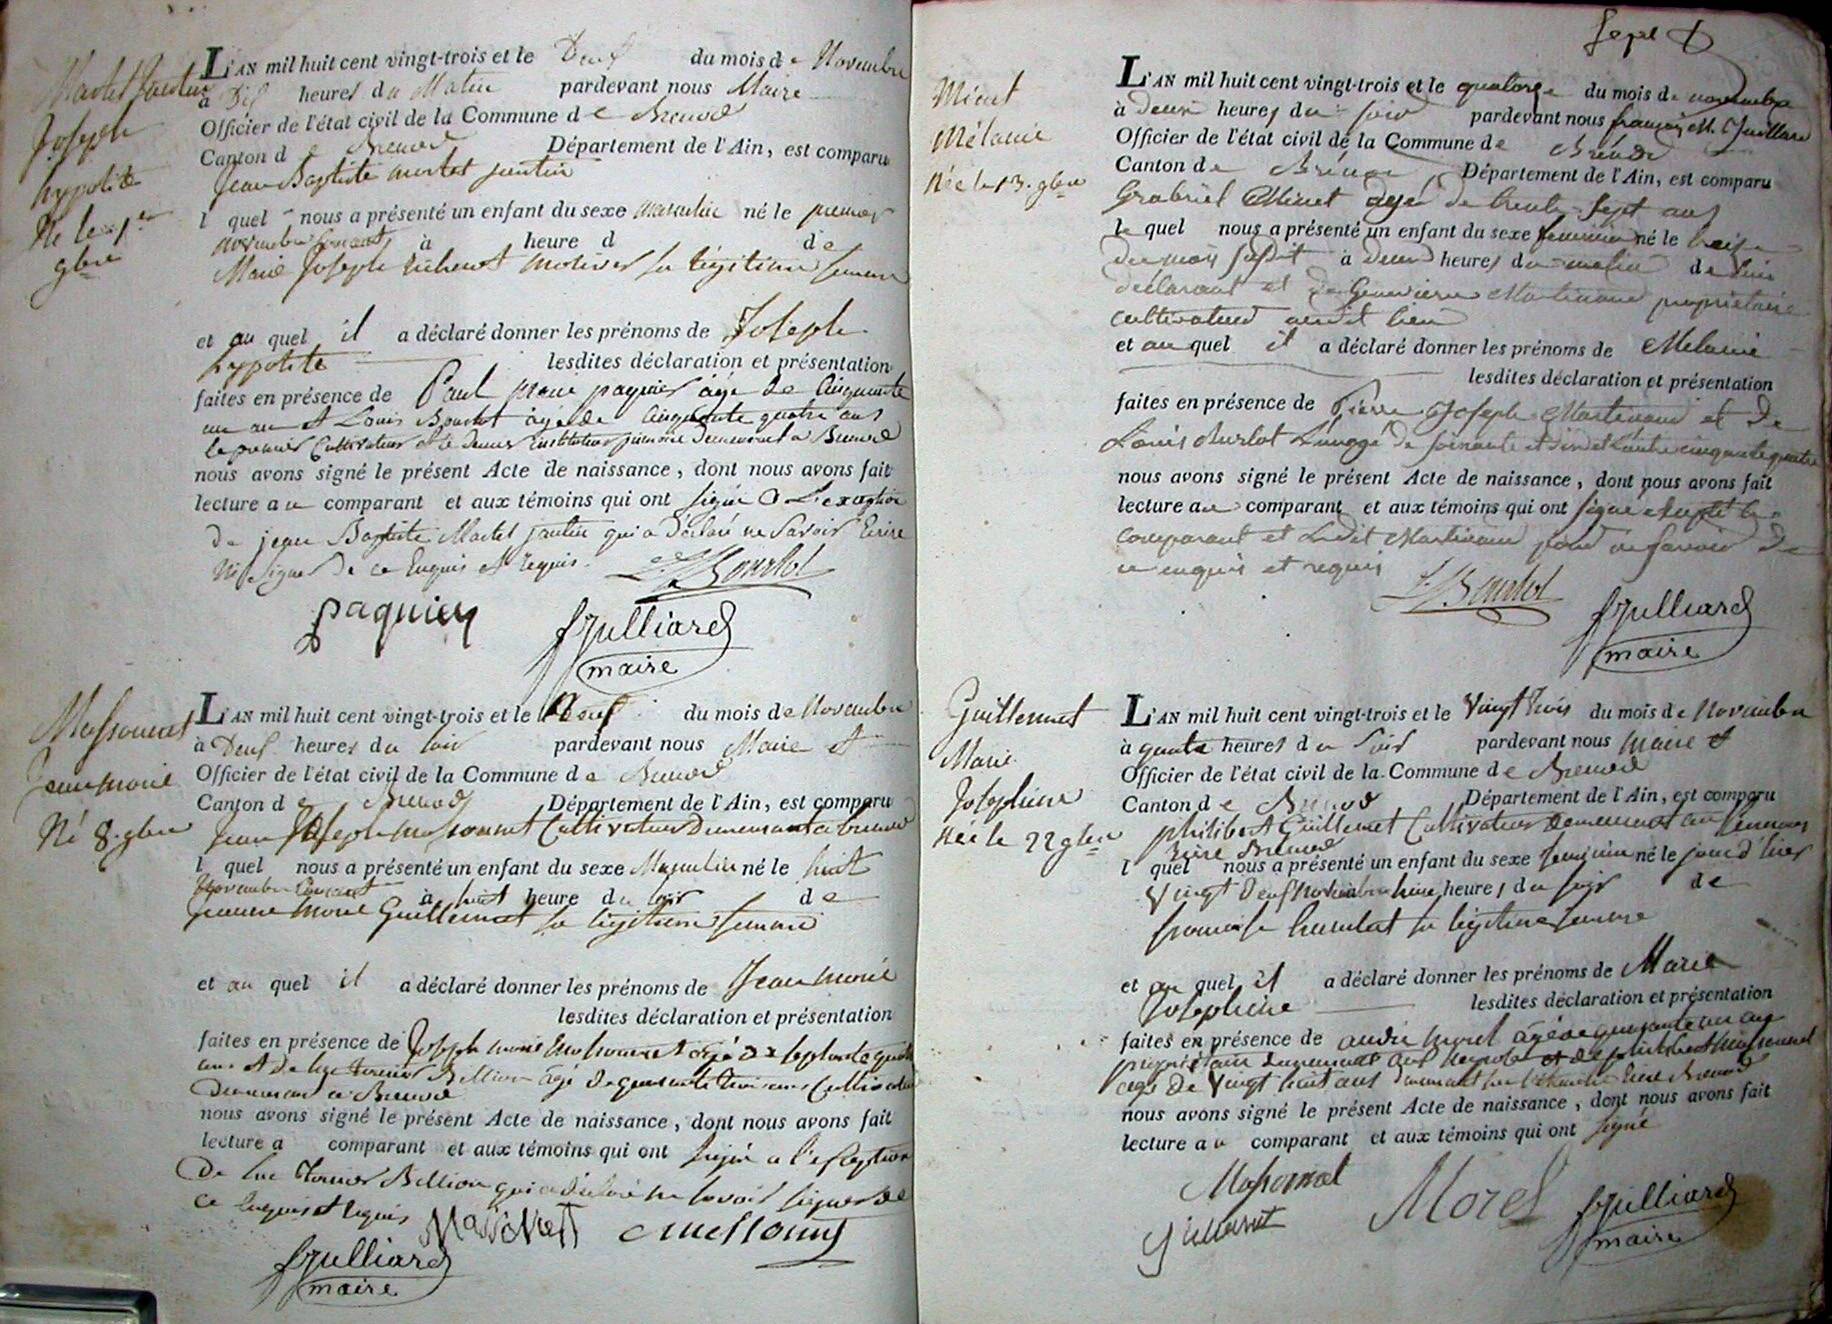 Martel Jantin
Joseph
hypolite
Né le 1er
9bre
L'AN mil huit cent vingt-trois et le Deux du mois de Novembre
à Dix heures du Matin pardevant nous Maire
Officier de l'état civil de la Commune de Brenod
Canton de Brenod Département de l'Ain, est comparu
Jean Baptiste martel jantin
l quel nous a présenté un enfant du sexe masculin né le premier
novembre courant à heure d de
Marie Joseph sa légitime femme
et au quel il a déclaré donner les prénoms de Joseph
hypolite lesdites déclaration et présentation
faites en présence de Paul marie paquier âgé de Cinquante
un an et Louis Bourlot âgé de Cinquante quatre ans
le premier Cultivateur et le dernier instituteur demeurant a Brenod
nous avons signé le présent Acte de naissance, dont nous avons fait
lecture au comparant et aux témoins qui ont signé a L'exception
de jean Baptiste Martel jantin qui a déclaré ne savoir Ecrire
Ni signer de ce Enquis et requis.
L. Bourlot
paquier
fJulliard
maire
Massonnet
Jean marie
Né 8. 9bre
L'AN mil huit cent vingt-trois et le Neuf du mois de Novembre
à Deux heures du soir pardevant nous Maire et
Officier de l'état civil de la Commune de Brenod
Canton de Brenod Département de l'Ain, est comparu
Jean Joseph massonnet Cultivateur Demeurant a brenod
l quel nous a présenté un enfant du sexe Masculin né le huit
Novembre Courant à huit heure du soir de
marie Guillermet sa légitime femme
et au quel il a déclaré donner les prénoms de Jean marie
lesdites déclaration et présentation
faites en présence de Joseph marie massonnet agé de septante
ans et de luc Billion âgé de quarante trois ans Cultivateurs
Demeurant a Brenod
nous avons signé le présent Acte de naissance, dont nous avons fait
lecture a comparant et aux témoins qui ont signé a l'exception
De luc Billion qui a déclaré ne savoir signer de
ce Enquis et requis
fJulliard
maire
Sept
Minet
Mélanie
Née le 13. 9bre
L'AN mil huit cent vingt-trois et le quatorze du mois de novembre
à deux heures du soir pardevant nous françois M. Juillard
Officier de l'état civil de la Commune de Brénod
Canton de Brénod Département de l'Ain, est comparu
Grabriel Minet agé de trente sept ans
le quel nous a présenté un enfant du sexe feminin né le treize
du mois susdit à deux heures du matin de lui
déclarant et de Genevieve Martinand proprietaire
cultivateur audit lieu
et au quel il a déclaré donner les prénoms de Melanie
lesdites déclaration et présentation
faites en présence de Pierre Joseph Martinand et de
Louis Burlot L'un agé de soixante et dix et L'autre cinquante quatre
nous avons signé le présent Acte de naissance, dont nous avons fait
lecture au comparant et aux témoins qui ont signé excepté le
comparant et Ledit Martinand pour ne savoir de
ce enquis et requis
L. Bourlot
fJulliard
maire
Guillermet
Marie
Josephine
Née le 22 9bre
L'AN mil huit cent vingt-trois et le Vingt trois du mois de Novembre
à quatre heures du soir pardevant nous maire et
Officier de l'état civil de la Commune de Brenod
Canton de Brenod Département de l'Ain, est comparu
philibert Guillermet Cultivateur demeurant au
Brenod
l quel nous a présenté un enfant du sexe feminin né le jour d'hier
Vingt Deux Novembre heures du soir de
francoise humbert sa légitime femme
et au quel il a déclaré donner les prénoms de Marie
Josephine lesdites déclaration et présentation
faites en présence de andré morel âgé de quarante un ans
proprietaire demeurant et de philibert Massonnet
agé de vingt huit ans demeurant Brenod
nous avons signé le présent Acte de naissance, dont nous avons fait
lecture au comparant et aux témoins qui ont signé
Massonnet
Morel
fJulliard
maire